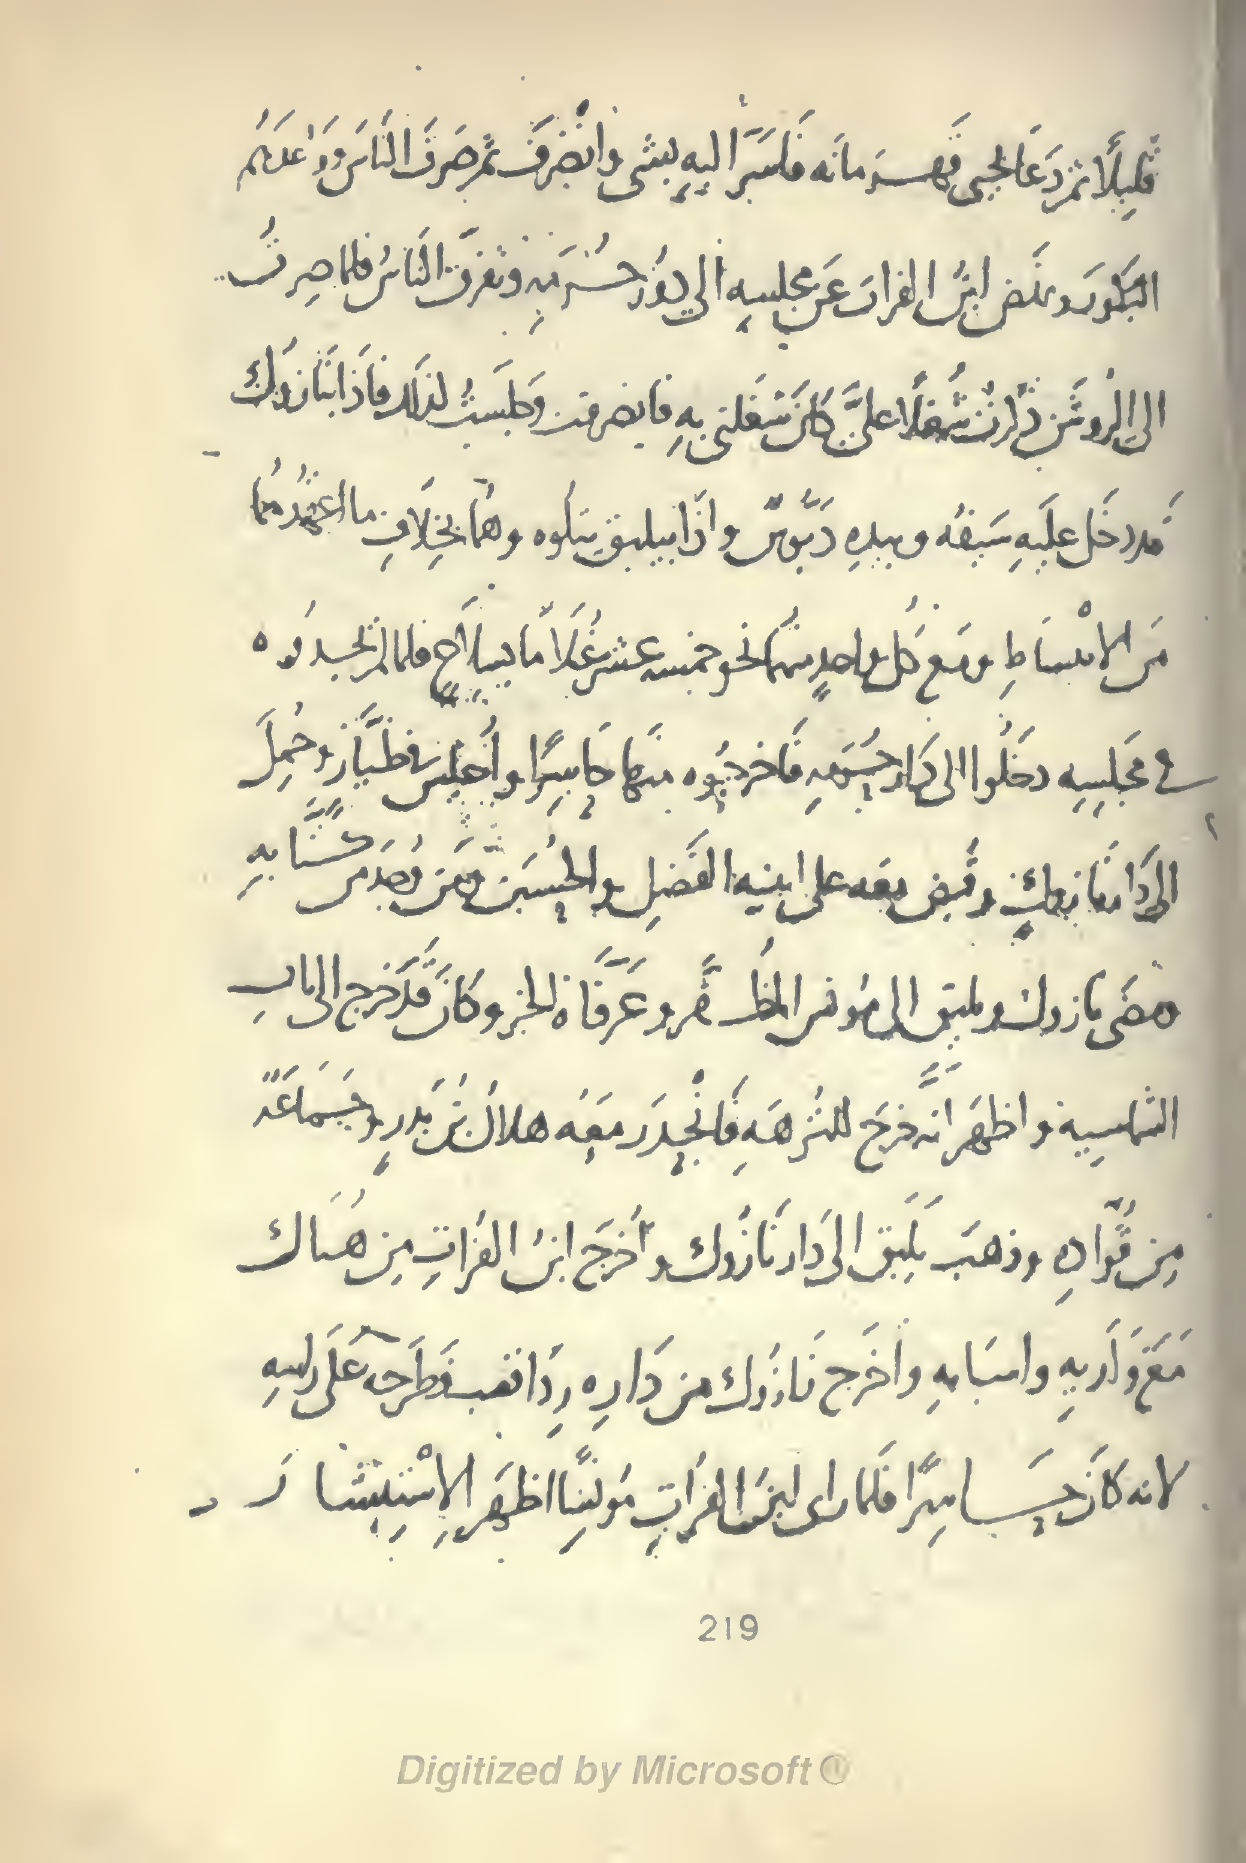 قليلًا ثم دَعَا يحيى قهرمانه فاسَرَّ اليهِ بشى وانْصَرفَ ثم صَرفَ النَاسَ وَوَاعدَهُم
البكورَ ونهَض ابنُ الفرات عَن مجلسِهِ الى دور حُرَمِهِ وتفرقَ الناسُ فلما صِرتُ
الى الروشَن ذكرتُ شُغلًا علىَّ كانَ شغَلنى بهِ فانصرفت وجَلَستُ لذلك فاذا نَازوك
قد دخَل عليَهِ سَيفُه وبيدِهِ دَبّوسٌ واذا يلبق يتلوه وهُمَا بخِلَافِ ما اعهَدُهُما
مَن الانْبسَاطِ ومَع كُل واحدٍ منهُما نحو خمسه عشر غُلَامًا بسِلَاحٍ فلما لم يجدوه
فى مجَلِسِه دخَلُوا الى دَار حُرَمهِ فَاخرجُوه منهَا حَاسِرًا وأُجلِسَ فى طيَّازٍ وحُمِلَ
الى دَار نَازوكٍ وقُبِض معَه على ابنيه الفَضلِ والحُسَين ومَن وُجدَ من كُتَّابهِ
ومضَى نازوك ويلبق الى مُونس المظُفَّر وعَرَّفَاهُ الخبر وكانَ قَد خَرج الى بابِ
الشماسِية واظهَرَ انَّه خرَج للنُزهَهِ فَانْحدَر معَه هلالُ بنُ بَدرٍ وجَمَاعَةٌ
مِن قُوّادِهِ وذهبَ يَلَبق الى دَار نَازُوك وأخرَج ابنُ الفُراتِ مِن هُنَاك
مَعَ وَلَديهِ واسبَابهِ واخرَج نَازُوك من دَارِه رِدَا قصب فَطَرحَه عَلَى راسِهِ
لانه كانَ حَاسِرًا فلَما راى ابنُ الفُراتِ مُونسًا اظهَر الاسْتِبشَارَ
219
Digitized by Microsoft ®